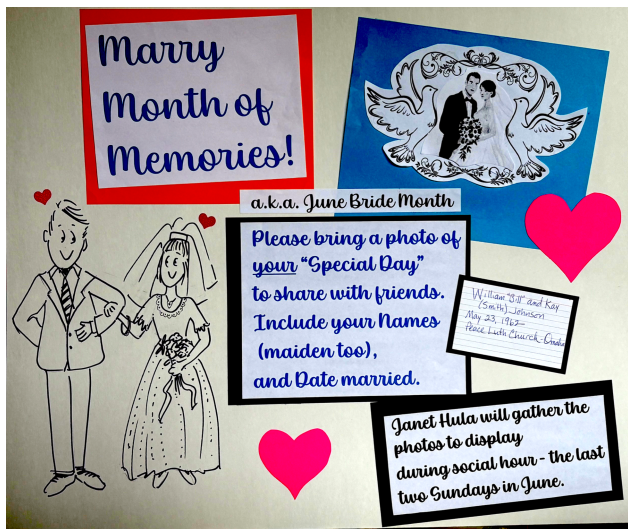 Marry
Month of
Memories!
a.k.a. June Bride Month
Please bring a photo of
your "Special Day"
to share with friends.
Include your Names
(maiden too),
and Date married.
William "Bill" and Kay
(Smith) Johnson
May 23, 1962
Peace Luth Church - Omaha
Janet Hula will gather the
photos to display
during social hour - the last
two Sundays in June.